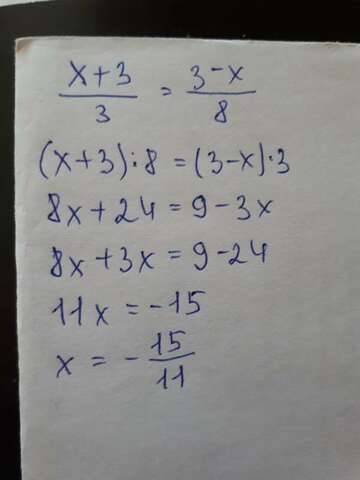 x+3/3 = 3-x/8
(x+3):8 = (3-x)·3
8x+24 = 9-3x
8x+3x = 9-24
11x = -15
x = -15/11